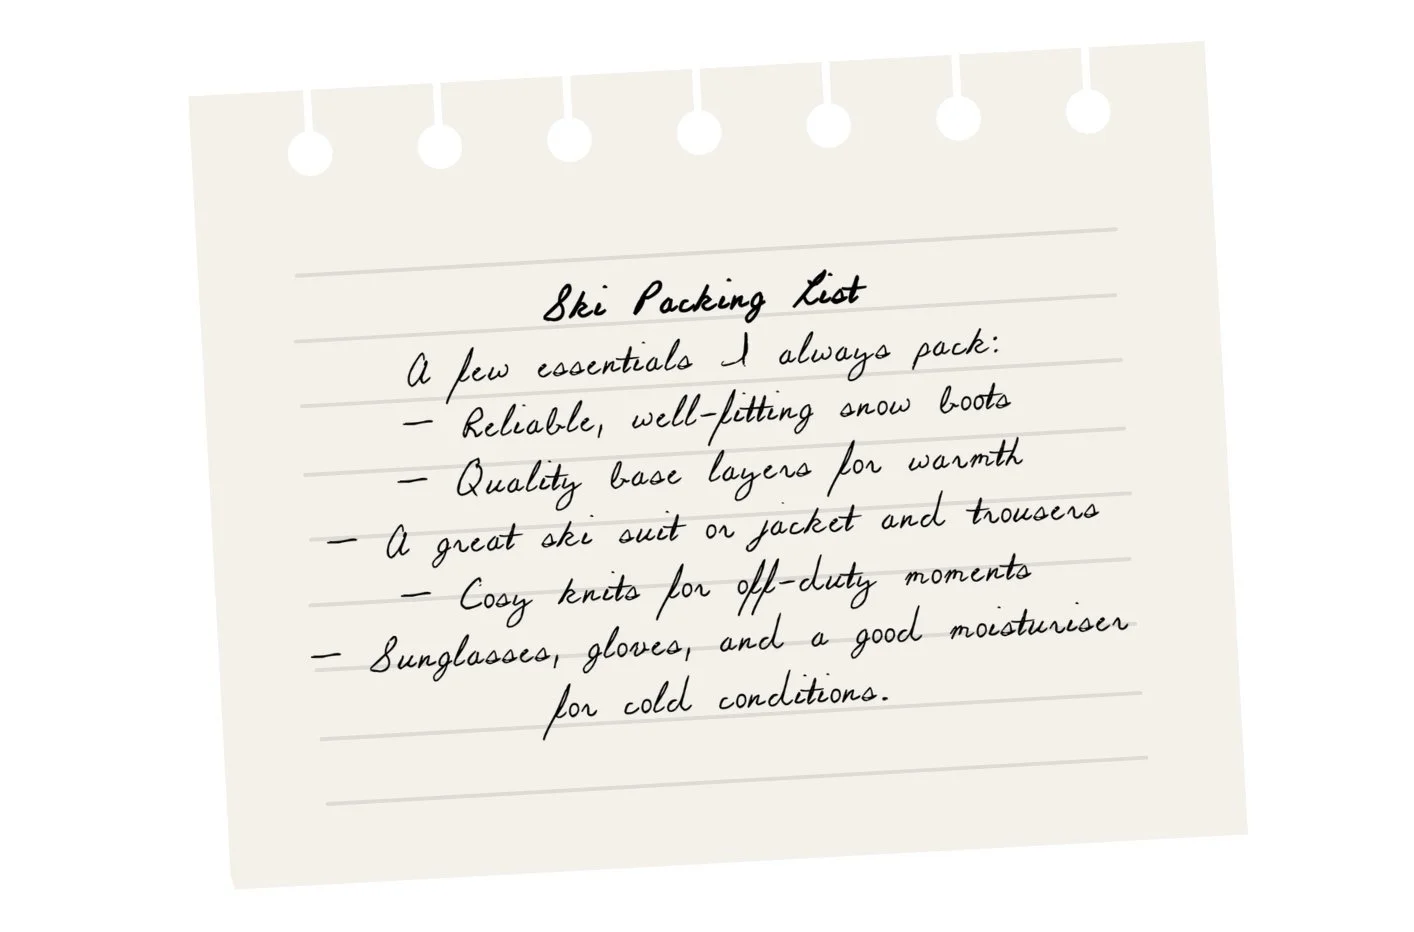 Ski Packing List
A few essentials I always pack:
— Reliable, well-fitting snow boots
— Quality base layers for warmth
— A great ski suit or jacket and trousers
— Cosy knits for off-duty moments
— Sunglasses, gloves, and a good moisturiser
for cold conditions.